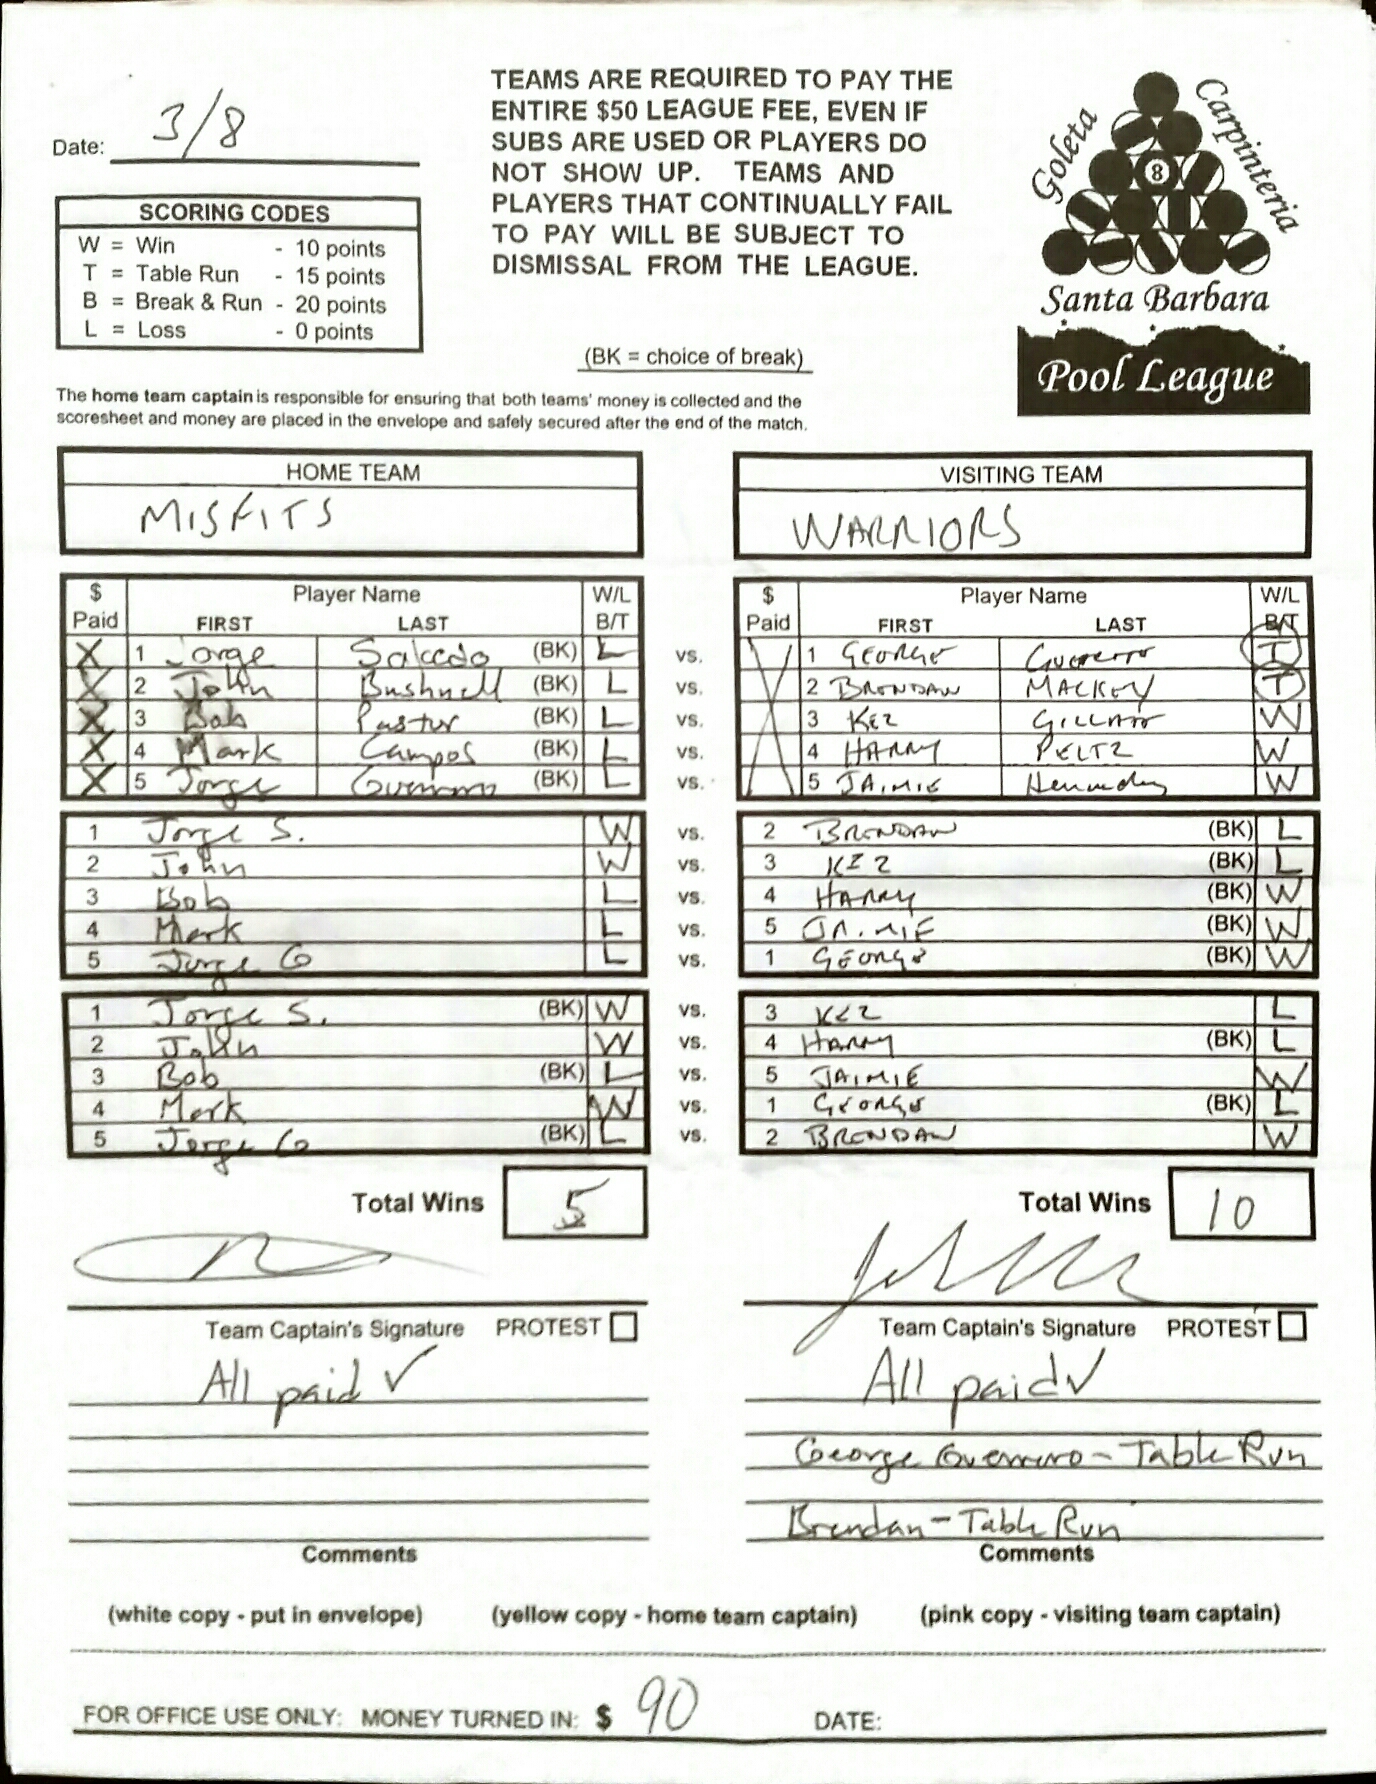 Date: 3/8
TEAMS ARE REQUIRED TO PAY THE
ENTIRE $50 LEAGUE FEE, EVEN IF
SUBS ARE USED OR PLAYERS DO
NOT SHOW UP. TEAMS AND
PLAYERS THAT CONTINUALLY FAIL
TO PAY WILL BE SUBJECT TO
DISMISSAL FROM THE LEAGUE.
(BK = choice of break)
Goleta
Carpinteria
8
Santa Barbara
Pool League
SCORING CODES
W = Win - 10 points
T = Table Run - 15 points
B = Break & Run - 20 points
L = Loss - 0 points
The home team captain is responsible for ensuring that both teams' money is collected and the
scoresheet and money are placed in the envelope and safely secured after the end of the match.
HOME TEAM VISITING TEAM
MISFITS WARRIORS
$ Player Name W/L $ Player Name W/L
Paid FIRST LAST B/T Paid FIRST LAST B/T
X 1 Jorge Salcedo (BK) L vs. 1 GEORGE T
X 2 John Bushnell (BK) L vs. 2 BRENDAN MACKEY T
X 3 Bob Pastur (BK) L vs. 3 KEZ W
X 4 Mark Campos (BK) L vs. 4 HARRY PELTZ W
X 5 Jorge Guerrero (BK) L vs. 5 JAIMIE W
1 Jorge S. W vs. 2 BRENDAN (BK) L
2 John W vs. 3 KEZ (BK) L
3 Bob L vs. 4 HARRY (BK) W
4 Mark L vs. 5 JAIMIE (BK) W
5 Jorge G L vs. 1 GEORGE (BK) W
1 Jorge S. (BK) W vs. 3 KEZ L
2 John W vs. 4 HARRY (BK) L
3 Bob (BK) L vs. 5 JAIMIE W
4 Mark W vs. 1 GEORGE (BK) L
5 Jorge G (BK) L vs. 2 BRENDAN W
Total Wins 5 Total Wins 10
Team Captain's Signature PROTEST Team Captain's Signature PROTEST
All paid ✓ All paid ✓
George Guerrero - Table Run
Brendan - Table Run
Comments Comments
(white copy - put in envelope) (yellow copy - home team captain) (pink copy - visiting team captain)
FOR OFFICE USE ONLY: MONEY TURNED IN: $ 90 DATE: